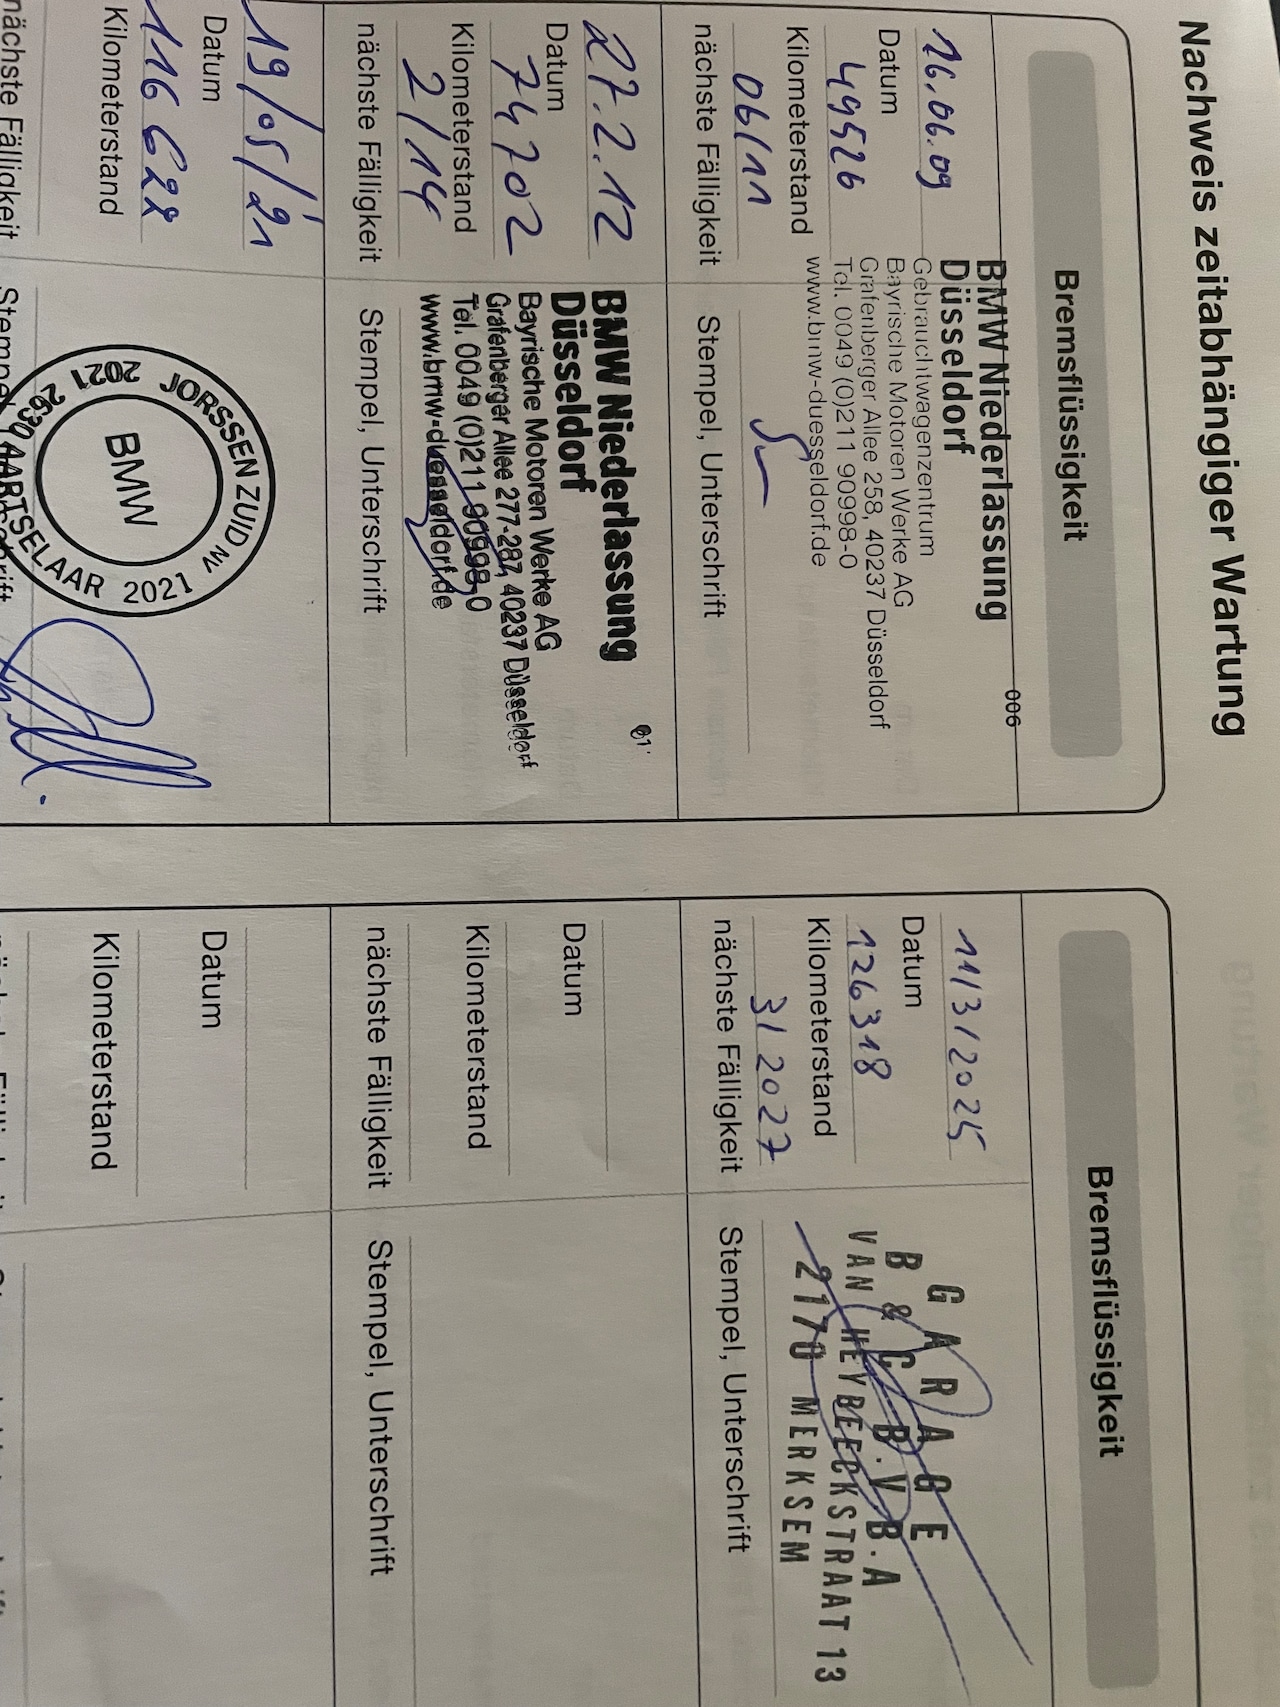 Nachweis zeitabhängiger Wartung
Bremsflüssigkeit
16.06.09
Datum
49526
Kilometerstand
06/11
nächste Fälligkeit
006
BMW Niederlassung
Düsseldorf
Gebrauchtwagenzentrum
Bayrische Motoren Werke AG
Grafenberger Allee 258, 40237 Düsseldorf
Tel. 0049 (0)211 90998-0
www.bmw-duesseldorf.de
Stempel, Unterschrift
27.2.12
Datum
74702
Kilometerstand
2/14
nächste Fälligkeit
BMW Niederlassung
Düsseldorf
Bayrische Motoren Werke AG
Grafenberger Allee 277-287, 40237 Düsseldorf
Tel. 0049 (0)211 90998-0
www.bmw-duesseldorf.de
Stempel, Unterschrift
19/05/21
Datum
116628
Kilometerstand
nächste Fälligkeit
JORSSEN ZUID NV
2021 2630 AARTSELAAR 2021
BMW
Stempel, Unterschrift
Bremsflüssigkeit
11/3/2025
Datum
126318
Kilometerstand
3/2027
nächste Fälligkeit
GARAGE
B & C B.V.B.A
VAN HEYBEECKSTRAAT 13
2170 MERKSEM
Stempel, Unterschrift
Datum
Kilometerstand
nächste Fälligkeit
Stempel, Unterschrift
Datum
Kilometerstand